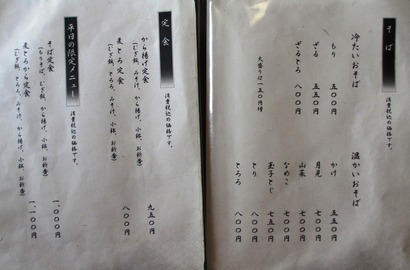 そば
消費税込の価格です。
冷たいおそば
もり 五五〇円
ざる 五五〇円
ざるとろ 八〇〇円
大盛りは一五〇円増
温かいおそば
かけ 五五〇円
月見 七〇〇円
山菜 七〇〇円
なめこ 七〇〇円
玉子とじ 七〇〇円
とり 八〇〇円
とろろ 八〇〇円
定食
消費税込の価格です。
から揚げ定食 九五〇円
(むぎ飯、から揚げ、みそ汁、小鉢、お新香)
麦とろ定食 八〇〇円
(むぎ飯、とろろ、みそ汁、小鉢、お新香)
平日の限定メニュー
消費税込の価格です。
そば定食 一、〇〇〇円
(もりそば、むぎ飯、から揚げ、小鉢、お新香)
麦とろから定食 一、一〇〇円
(むぎ飯、とろろ、みそ汁、から揚げ、小鉢、お新香)